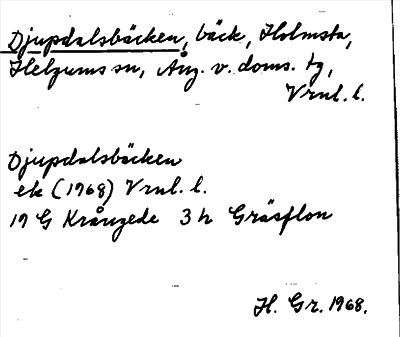 Djupdalsbäcken, bäck, Holmsta,
Helgums sn, Ång. v. doms. tg,
Vrnl. l.
Djupdalsbäcken
ek (1968) Vrnl. l.
19 G Krångede 3 h Gräsflon
H. Gr. 1968.